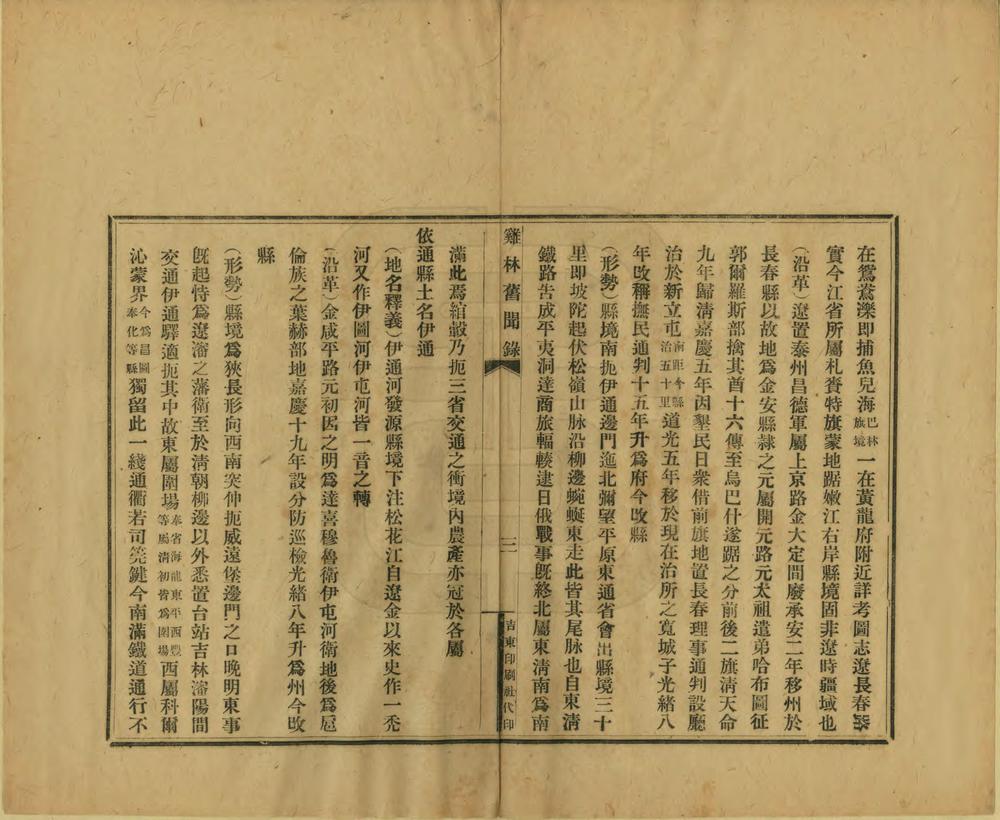 在鴛鴦濼即捕魚兒海巴林旗境一在黃龍府附近詳考圖志遼長春
實今江省所屬札賚特旗蒙地踞嫩江右岸縣境固非遼時疆域也
（沿革）遼置泰州昌德軍屬上京路金大定間廢承安二年移州於
長春縣以故地爲金安縣隷之元屬開元路元太祖遣弟哈布圖征
郭爾羅斯部擒其酋十六傳至烏巴什遂踞之分前後二旗淸天命
九年歸淸嘉慶五年因墾民日衆借前旗地置長春理事通判設廳
治於新立屯南距今縣治五十里道光五年移於現在治所之寬城子光緒八
年改稱撫民通判十五年升爲府今改縣
（形勢）縣境南扼伊通邊門迤北彌望平原東通省會出縣境三十
里即坡陀起伏松嶺山脉沿柳邊蜿蜒東走此皆其尾脉也自東淸
鐵路告成平夷洞達商旅輻輳逮日俄戰事旣終北屬東淸南爲南
雞林舊聞錄
三
吉東印刷社代印
滿此焉綰轂乃扼三省交通之衝境內農產亦冠於各屬
依通縣土名伊通
（地名釋義）伊通河發源縣境下注松花江自遼金以來史作一禿
河又作伊圖河伊屯河皆一音之轉
（沿革）金咸平路元初因之明爲達喜穆魯衛伊屯河衛地後爲扈
倫族之葉赫部地嘉慶十九年設分防巡檢光緒八年升爲州今改
縣
（形勢）縣境爲狹長形向西南突伸扼威遠堡邊門之口晚明東事
旣起恃爲遼瀋之藩衛至於淸朝柳邊以外悉置台站吉林瀋陽間
交通伊通驛適扼其中故東屬圍場奉省海龍東平西豐等屬淸初皆爲圍場西屬科爾
沁蒙界今爲昌圖奉化等縣獨留此一綫通衢若司筦鍵今南滿鐵道通行不